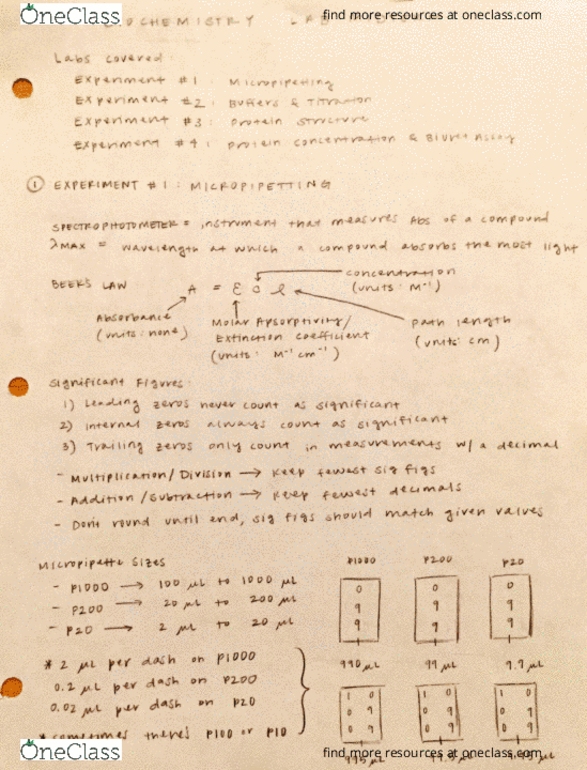 OneClass
find more resources at oneclass.com
BIOCHEMISTRY LAB
Labs covered:
Experiment #1: Micropipetting
Experiment #2: Buffers & Titration
Experiment #3: Protein Structure
Experiment #4: Protein Concentration & Biuret Assay
① EXPERIMENT #1: MICROPIPETTING
SPECTROPHOTOMETER = instrument that measures Abs of a compound
λMAX = wavelength at which a compound absorbs the most light
concentration
(units: M⁻¹)
BEERS LAW A = ε c l
Absorbance
(units: none)
Molar Absorptivity/
Extinction coefficient
(units: M⁻¹ cm⁻¹)
path length
(units: cm)
Significant Figures:
1) Leading zeros never count as significant
2) Internal zeros always count as significant
3) Trailing zeros only count in measurements w/ a decimal
- Multiplication/Division → Keep fewest sig figs
- Addition/Subtraction → Keep fewest decimals
- Don't round until end, sig figs should match given values
Micropipette Sizes
- P1000 → 100 μL to 1000 μL
- P200 → 20 μL to 200 μL
- P20 → 2 μL to 20 μL
P1000 P200 P20
0 0 0
9 9 9
9 9 9
990 μL 99 μL 9.9 μL
* 2 μL per dash on P1000
0.2 μL per dash on P200
0.02 μL per dash on P20
* sometimes there's P100 or P10
1 0 1 0 1 0
0 9 0 9 0 9
0 9 0 9 0 9
OneClass
find more resources at oneclass.com